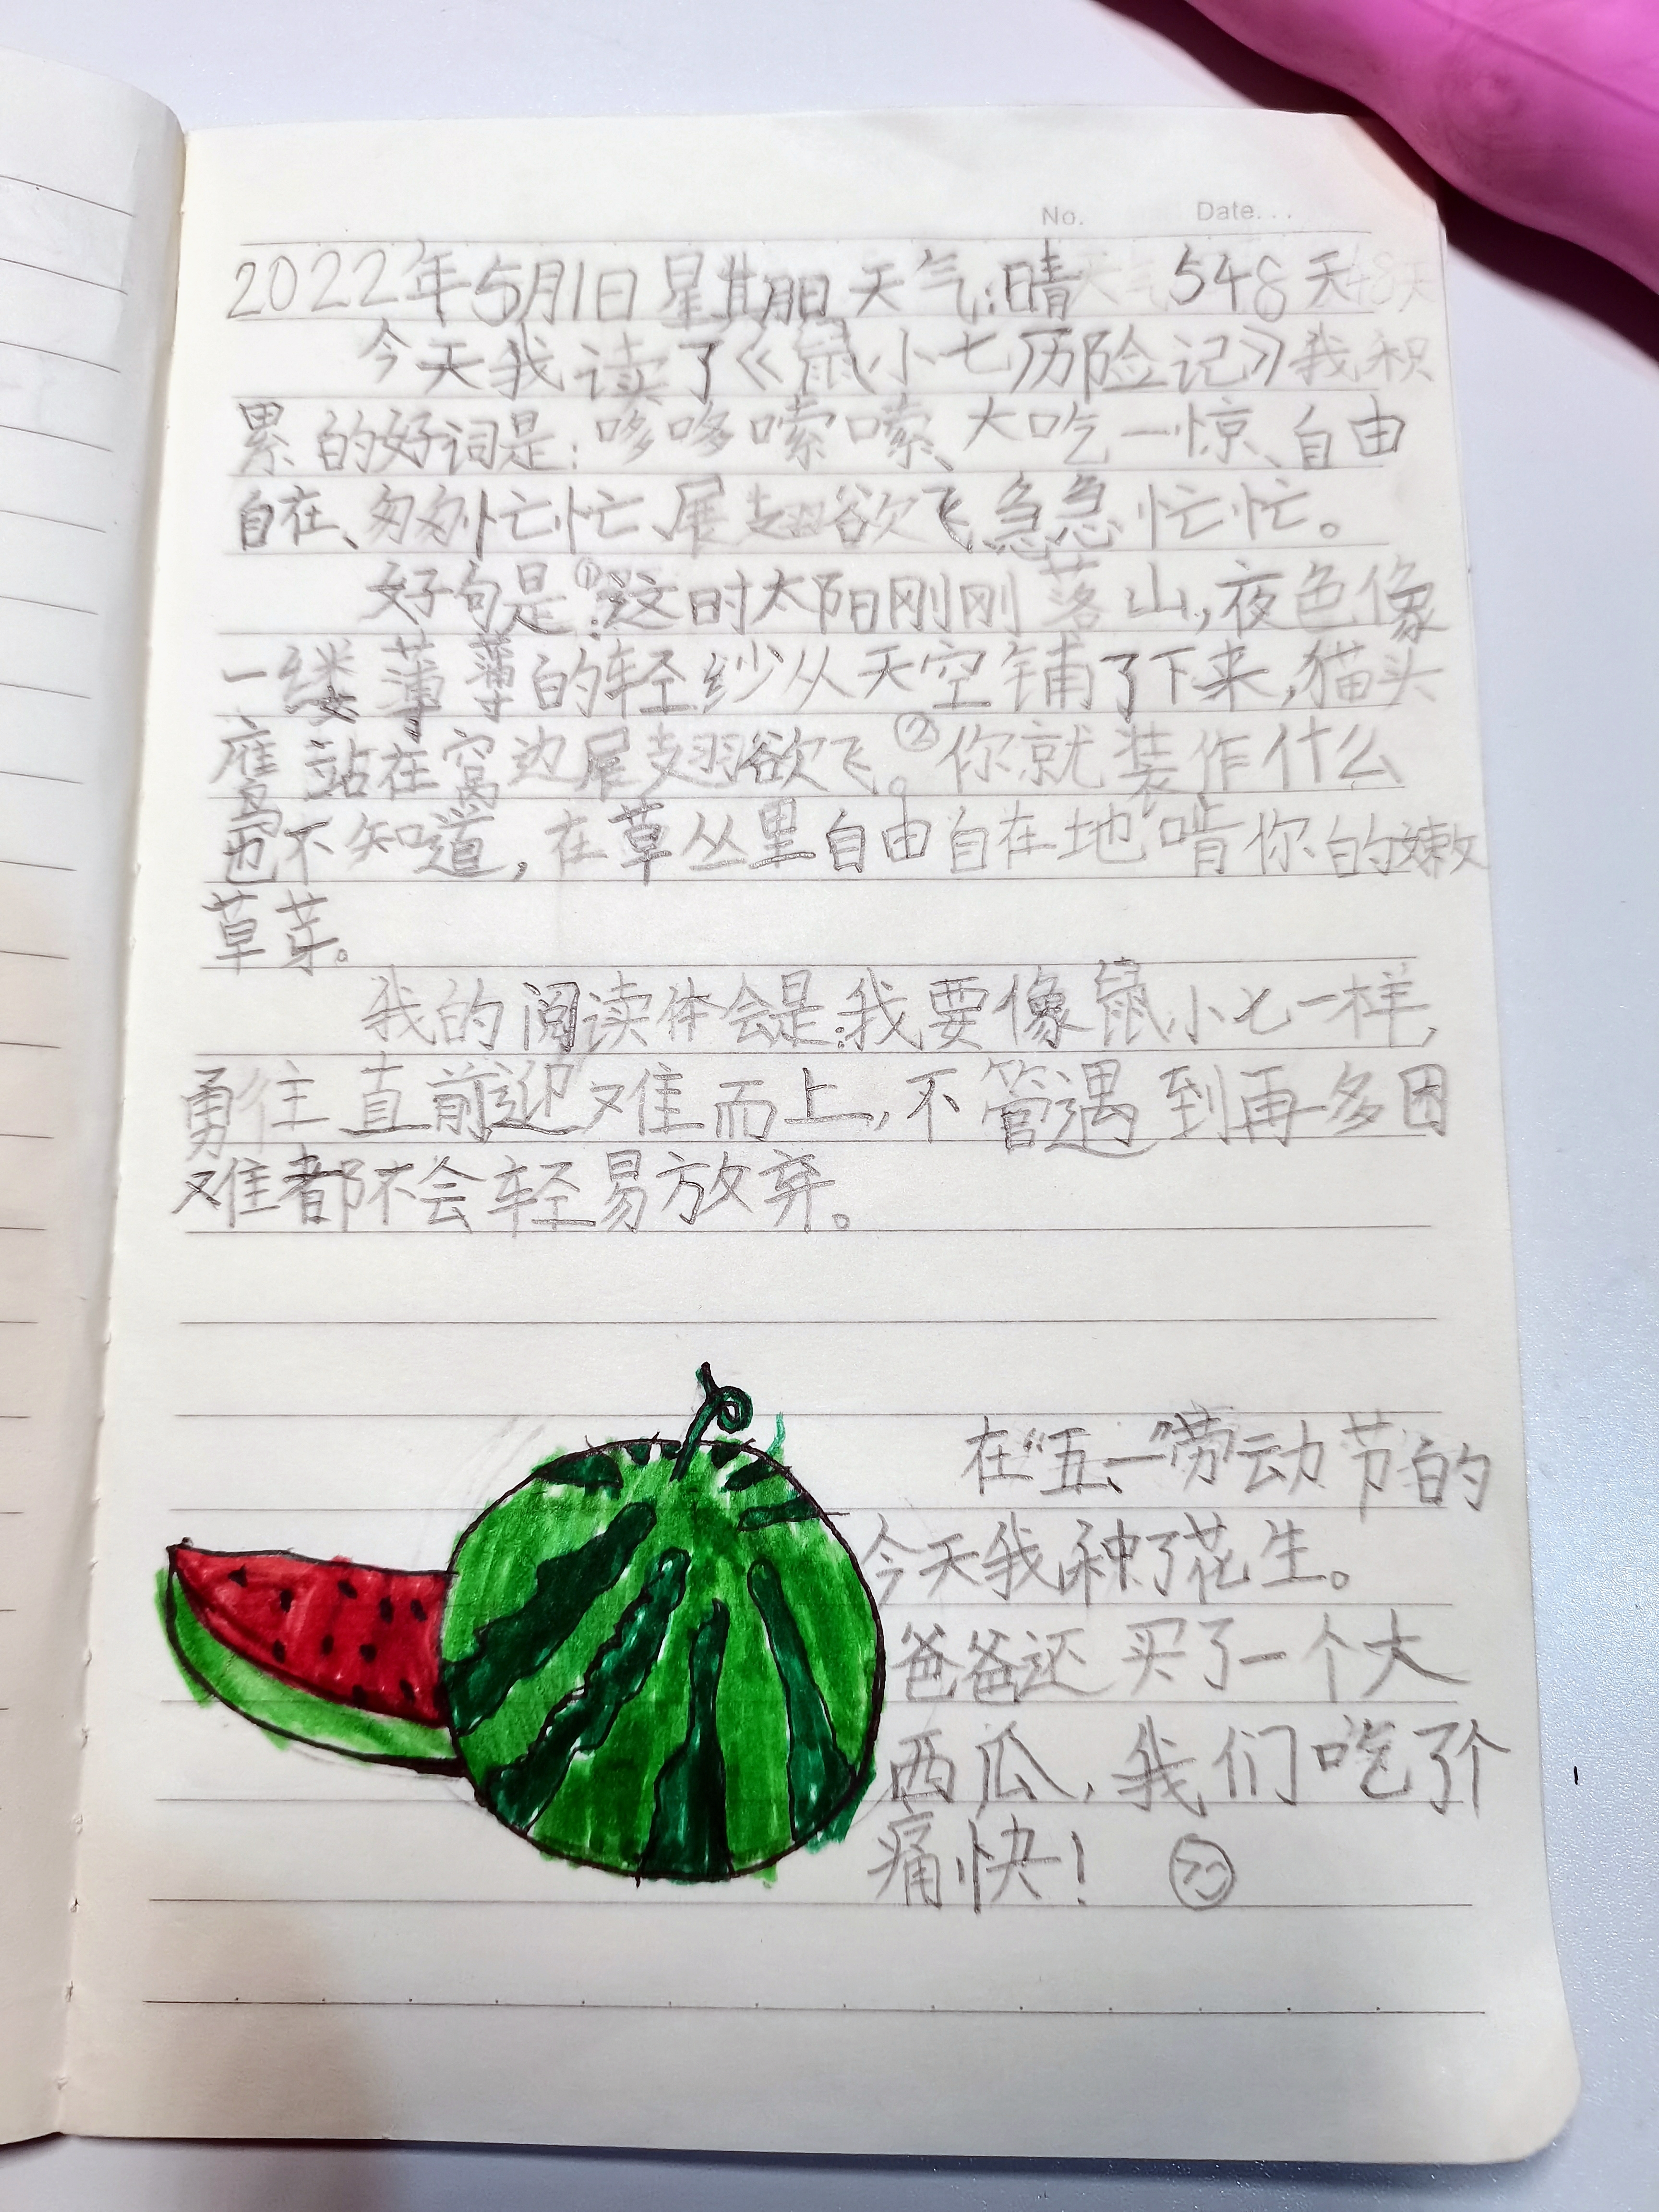 No. Date...
2022年5月1日 星期日 天气:晴 548天
今天我读了《鼠小七历险记》我积
累的好词是:哆哆嗦嗦、大吃一惊、自由
自在、匆匆忙忙、展翅欲飞、急急忙忙。
好句是:①这时太阳刚刚落山,夜色像
一缕薄薄的轻纱从天空铺了下来,猫头
鹰站在窝边展翅欲飞。②你就装作什么
也不知道,在草丛里自由自在地啃你的嫩
草芽。
我的阅读体会是:我要像鼠小七一样,
勇往直前迎难而上,不管遇到再多困
难都不会轻易放弃。
在“五、一”劳动节的
今天我种了花生。
爸爸还买了一个大
西瓜,我们吃了个
痛快!